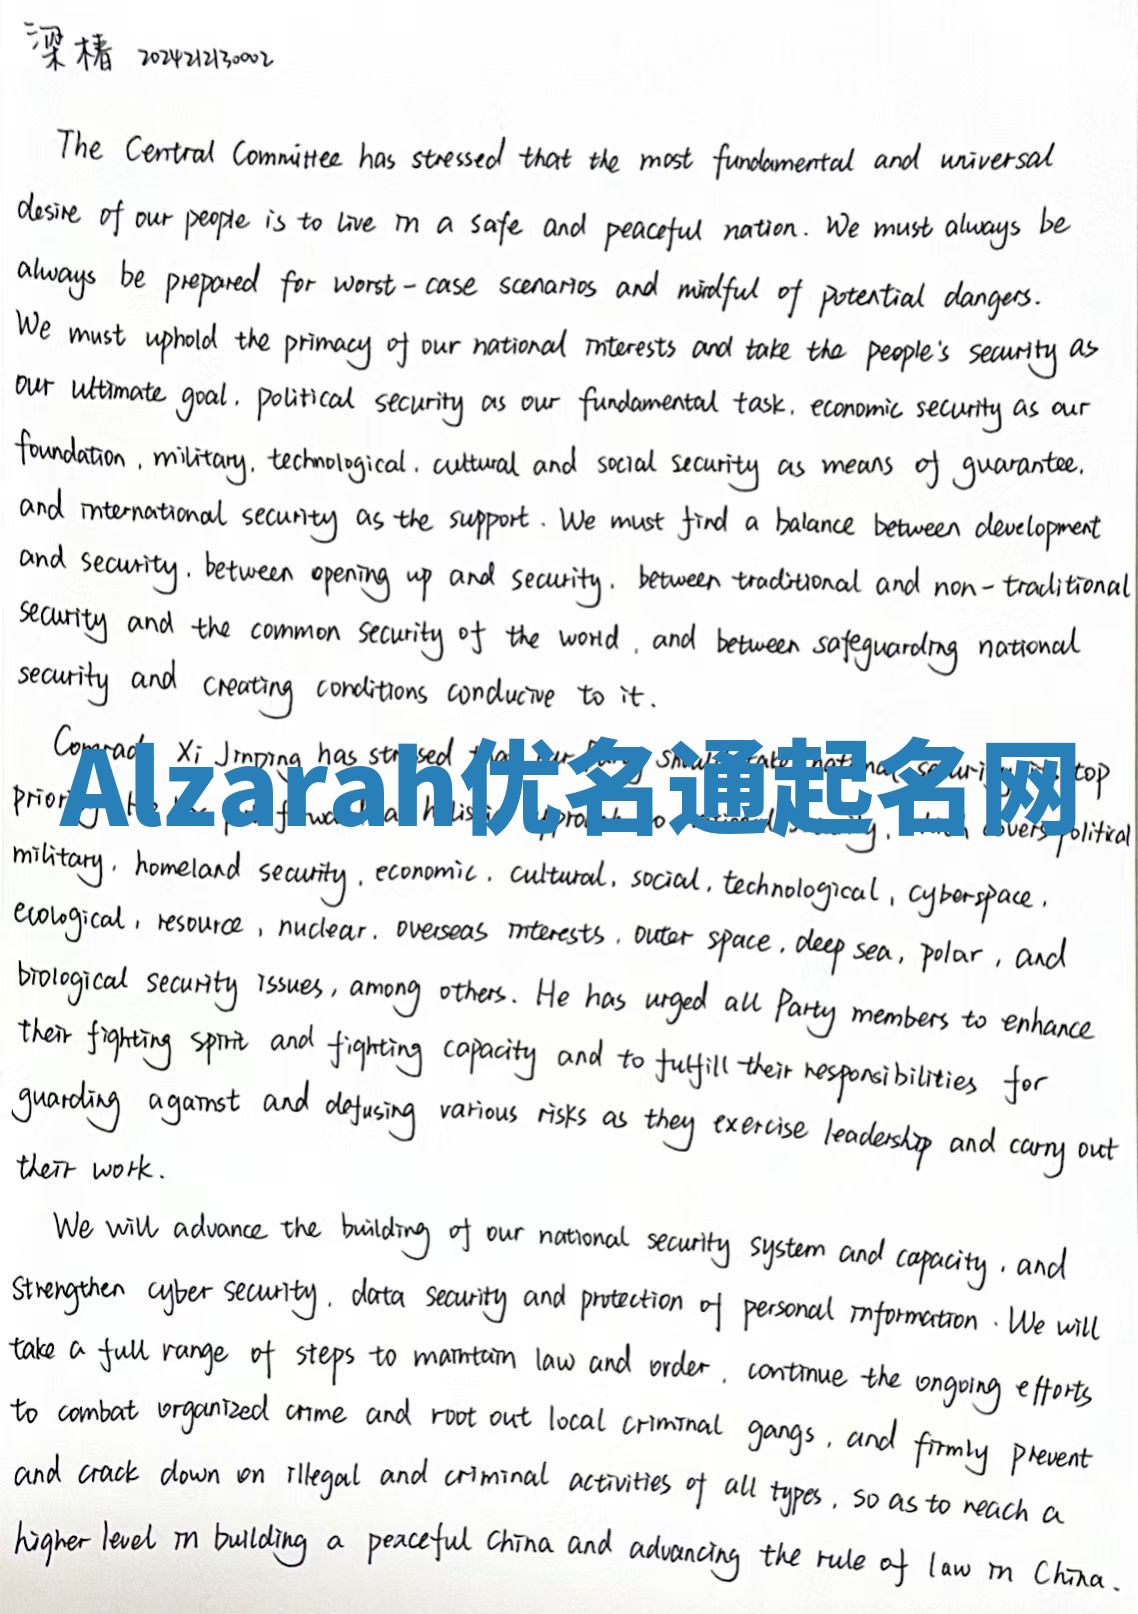 梁椿 2024212130002
The Central Committee has stressed that the most fundamental and universal
desire of our people is to live in a safe and peaceful nation. We must always be
always be prepared for worst-case scenarios and mindful of potential dangers.
We must uphold the primacy of our national interests and take the people's security as
our ultimate goal, political security as our fundamental task, economic security as our
foundation, military, technological, cultural and social security as means of guarantee,
and international security as the support. We must find a balance between development
and security, between opening up and security, between traditional and non-traditional
security and the common security of the world, and between safeguarding national
security and creating conditions conducive to it.
Comrade Xi Jinping has stressed that our Party should take national security top
Alzarah优名通起名网
He has put forward a holistic approach to national security, which covers political
military, homeland security, economic, cultural, social, technological, cyberspace,
ecological, resource, nuclear, overseas interests, outer space, deep sea, polar, and
biological security issues, among others. He has urged all Party members to enhance
their fighting spirit and fighting capacity and to fulfill their responsibilities for
guarding against and defusing various risks as they exercise leadership and carry out
their work.
We will advance the building of our national security system and capacity, and
strengthen cyber security, data security and protection of personal information. We will
take a full range of steps to maintain law and order, continue the ongoing efforts
to combat organized crime and root out local criminal gangs, and firmly prevent
and crack down on illegal and criminal activities of all types, so as to reach a
higher level in building a peaceful China and advancing the rule of law in China.